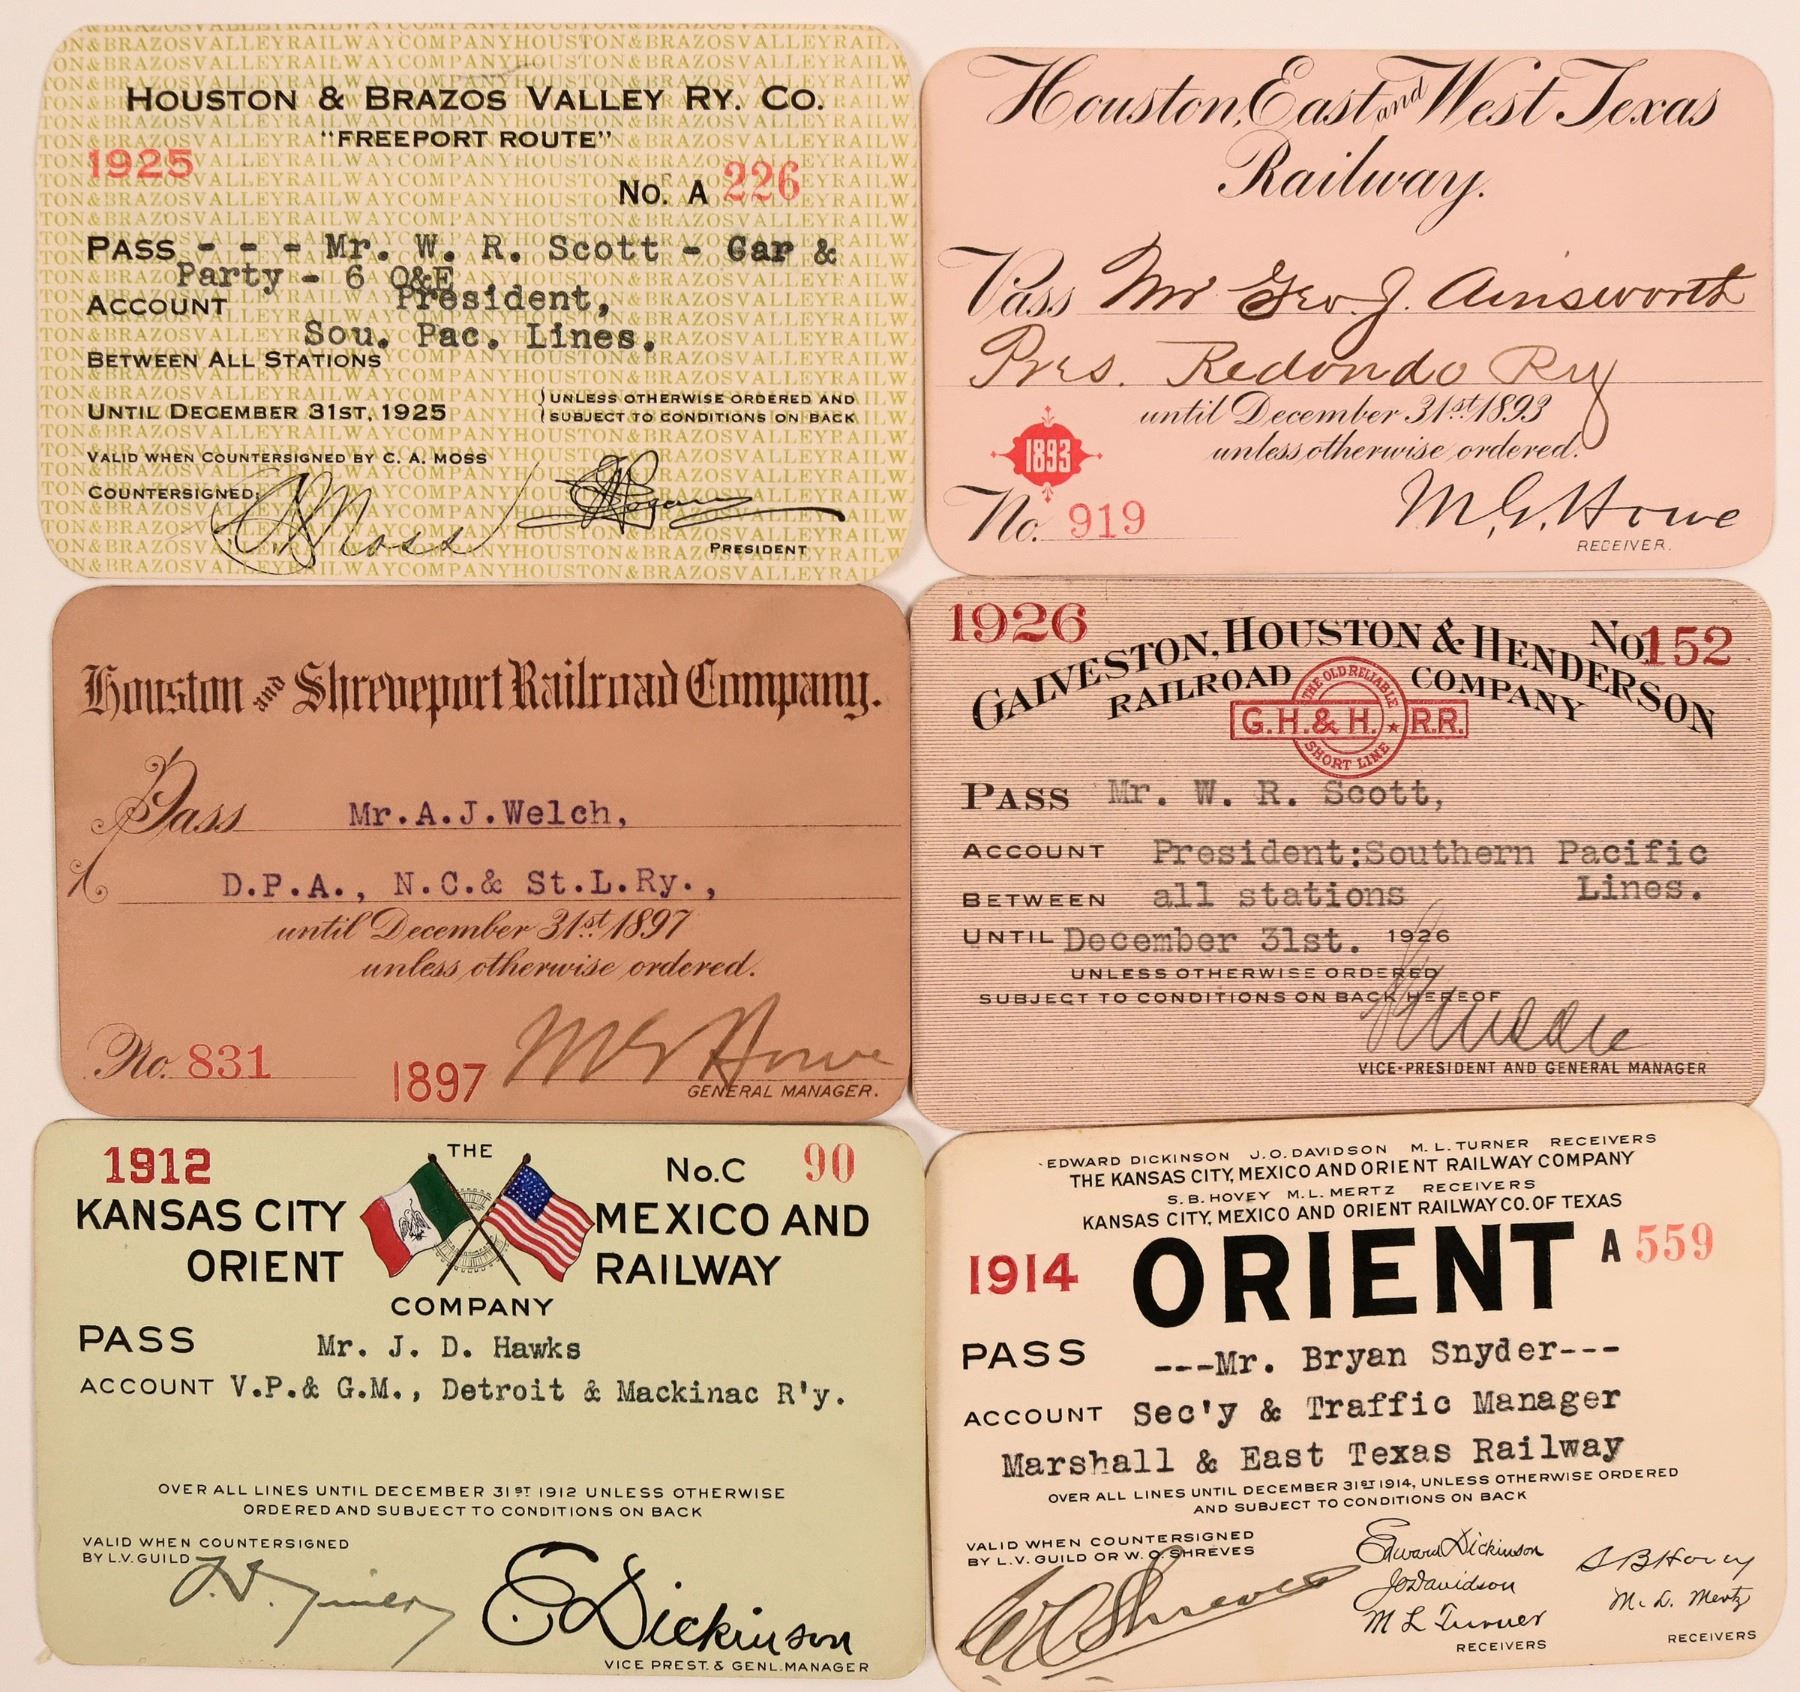 HOUSTON & BRAZOS VALLEY RY. CO.
"FREEPORT ROUTE"
1925
No. A 226
PASS - - - Mr. W. R. Scott - Car &
Party - 6 O&E
ACCOUNT President,
Sou. Pac. Lines.
BETWEEN ALL STATIONS
UNTIL DECEMBER 31ST, 1925
UNLESS OTHERWISE ORDERED AND
SUBJECT TO CONDITIONS ON BACK
VALID WHEN COUNTERSIGNED BY C. A. MOSS
COUNTERSIGNED;
C A Moss
PRESIDENT
Houston, East and West Texas
Railway.
Pass Mr Geo. J. Ainsworth
Pres. Redondo Ry
until December 31st 1893
unless otherwise ordered.
1893
No. 919
M. G. Howe
RECEIVER.
Houston and Shreveport Railroad Company.
Pass Mr.A.J.Welch,
D.P.A., N.C.& St.L.Ry.,
until December 31st 1897
unless otherwise ordered.
No. 831
1897
M G Howe
GENERAL MANAGER.
1926
No. 152
GALVESTON, HOUSTON & HENDERSON
RAILROAD COMPANY
THE OLD RELIABLE
G.H.& H. R.R.
SHORT LINE
PASS Mr. W. R. Scott,
ACCOUNT President:Southern Pacific
BETWEEN all stations Lines.
UNTIL December 31st. 1926
UNLESS OTHERWISE ORDERED
SUBJECT TO CONDITIONS ON BACK HEREOF
VICE-PRESIDENT AND GENERAL MANAGER
1912
THE
No. C 90
KANSAS CITY MEXICO AND
ORIENT RAILWAY
COMPANY
PASS Mr. J. D. Hawks
ACCOUNT V.P.& G.M., Detroit & Mackinac R'y.
OVER ALL LINES UNTIL DECEMBER 31ST 1912 UNLESS OTHERWISE
ORDERED AND SUBJECT TO CONDITIONS ON BACK
VALID WHEN COUNTERSIGNED
BY L.V. GUILD
E Dickinson
VICE PREST. & GENL. MANAGER
EDWARD DICKINSON J.O. DAVIDSON M. L. TURNER RECEIVERS
THE KANSAS CITY, MEXICO AND ORIENT RAILWAY COMPANY
S. B. HOVEY M. L. MERTZ RECEIVERS
KANSAS CITY, MEXICO AND ORIENT RAILWAY CO. OF TEXAS
ORIENT
A 559
1914
PASS ---Mr. Bryan Snyder---
ACCOUNT Sec'y & Traffic Manager
Marshall & East Texas Railway
OVER ALL LINES UNTIL DECEMBER 31ST 1914, UNLESS OTHERWISE ORDERED
AND SUBJECT TO CONDITIONS ON BACK
VALID WHEN COUNTERSIGNED
BY L.V. GUILD OR W. O. SHREVES
W O Shreves
Edward Dickinson
J O Davidson
M L Turner
RECEIVERS
S B Hovey
M. L. Mertz
RECEIVERS